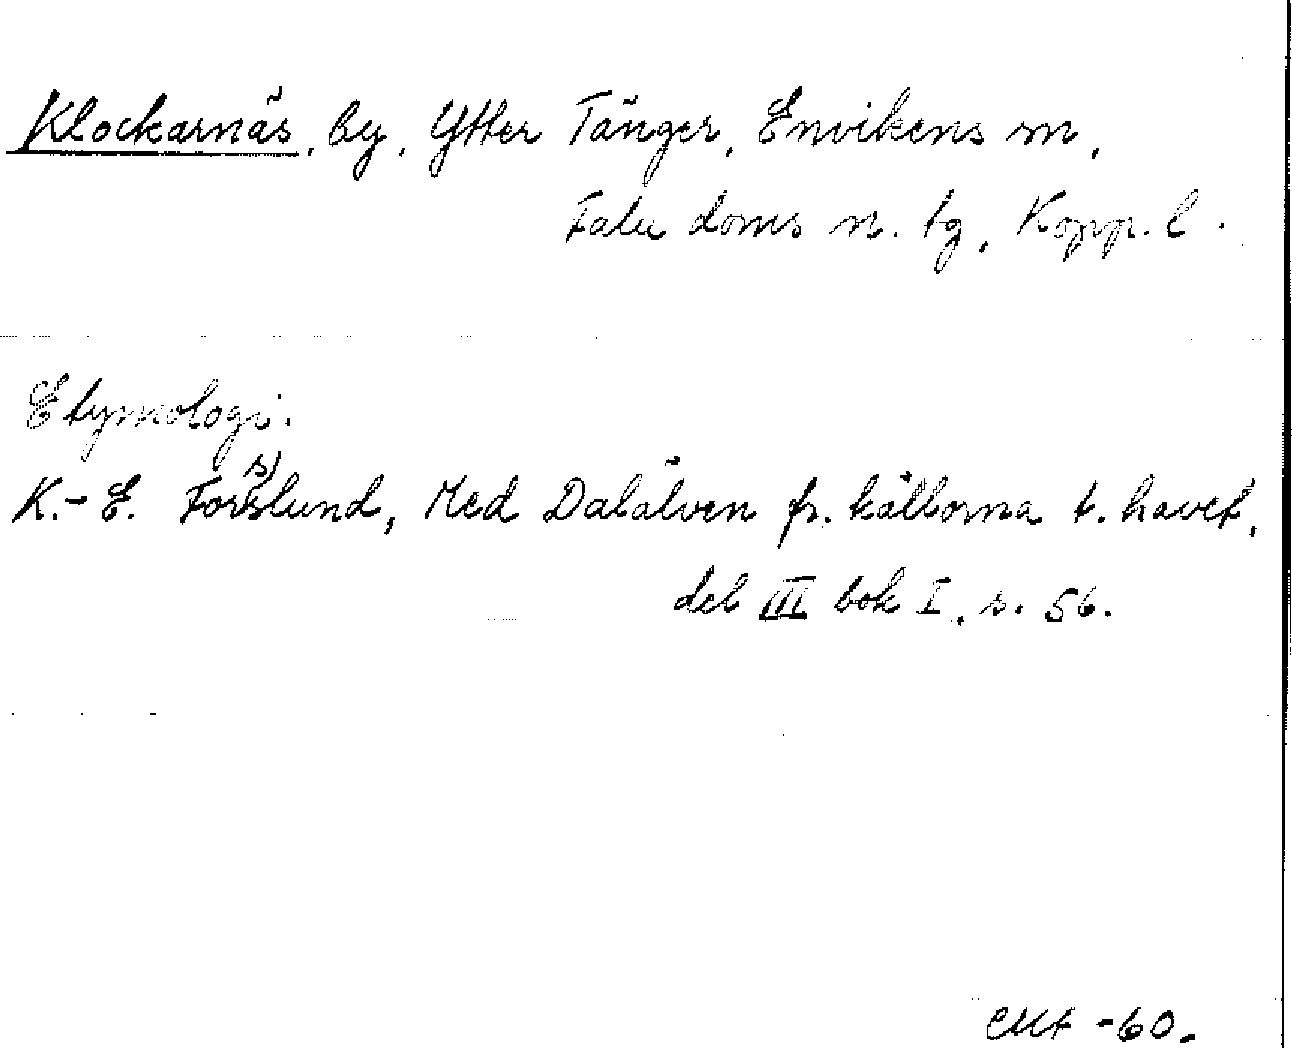 Klockarnäs, by, Ytter Tänger, Envikens sn,
Falu doms n. tg, Kopp. l.
Etymologi.
K.-E. Forsslund, Med Dalälven fr. källorna t. havet,
del III bok I, s. 56.
-60.